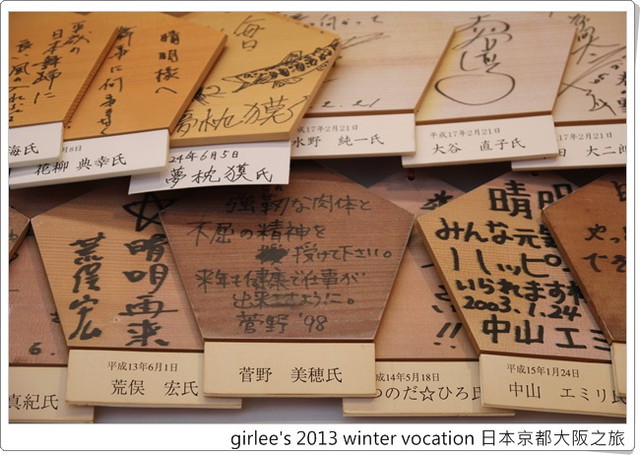 晴明様へ
毎日
夢枕獏
2.21
海氏
花柳 典幸氏
月8日
24年6月5日
夢枕 獏氏
平成17年2月21日
水野 純一氏
平成17年2月21日
大谷 直子氏
年2月21日
大二郎
荒俣宏
晴明再来
平成13年6月1日
荒俣 宏氏
強靭な肉体と
不屈の精神を
授けて下さい。
来年も健康で仕事が
出来ますように。
菅野 '98
菅野 美穂氏
平成14年5月18日
のだ☆ひろ氏
晴明
みんな元気
ハッピ
いられます
2003.1.24
中山 エミ
平成15年1月24日
中山 エミリ氏
真紀氏
girlee's 2013 winter vocation 日本京都大阪之旅